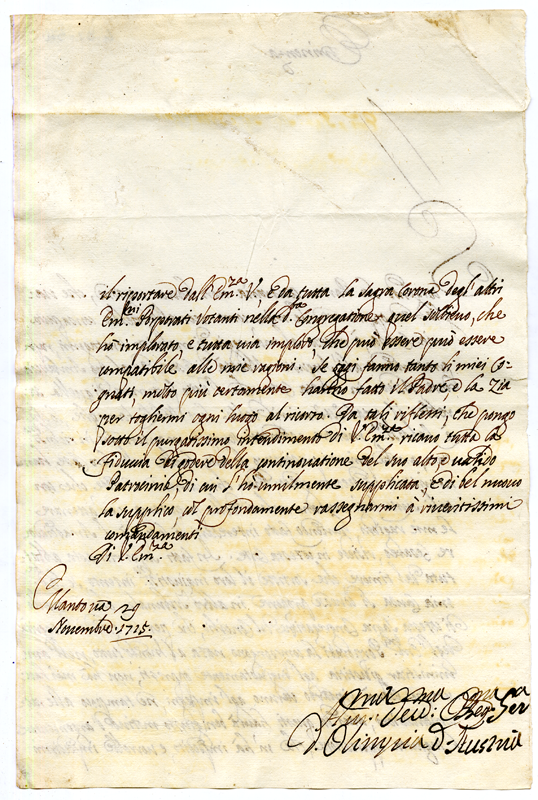 il riportare dall' Em.za V. Eda tutta la sagra Corona degl'altri
Em.mi Porporati Votanti nella S. Congregatione quel sollievo, che
hò implorato, e tutta via imploro, che può essere
compatibile alle mie ragioni. Se così fanno tanto li miei Co-
gnati, molto più certamente hanno fatto il Padre, e la Zia
per togliermi ogni luogo al ricorso. Da tali riflessi, che pongo
sotto il purgatissimo intendimento di V. Em.za ricavo tutta la
fiducia di godere della continuatione del suo alto, e valido
Patrocinio, di cui l'hò umilmente supplicata, Edi bel nuovo
la supplico, col profondamente rassegnarmi à riveritissimi
comandamenti
Di V. Em.za
Mantova 29
Novembre 1715.
D. Olimpia d'